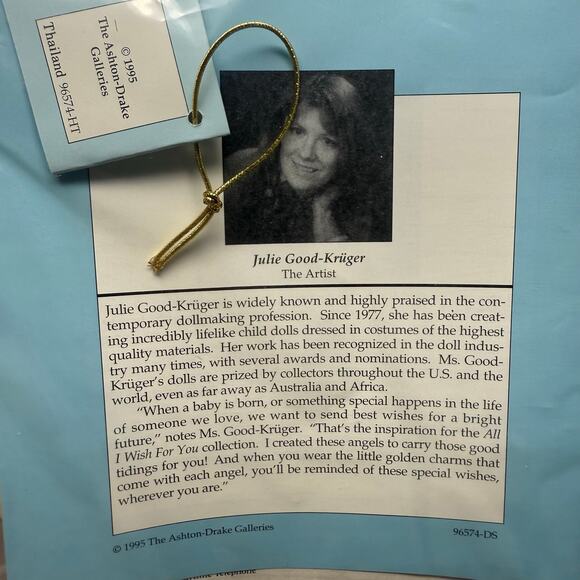 © 1995
The Ashton-Drake
Galleries
Thailand 96574-HT
Julie Good-Krüger
The Artist
Julie Good-Krüger is widely known and highly praised in the con-
temporary dollmaking profession. Since 1977, she has been creat-
ing incredibly lifelike child dolls dressed in costumes of the highest
quality materials. Her work has been recognized in the doll indus-
try many times, with several awards and nominations. Ms. Good-
Krüger's dolls are prized by collectors throughout the U.S. and the
world, even as far away as Australia and Africa.
"When a baby is born, or something special happens in the life
of someone we love, we want to send best wishes for a bright
future," notes Ms. Good-Krüger. "That's the inspiration for the All
I Wish For You collection. I created these angels to carry those good
tidings for you! And when you wear the little golden charms that
come with each angel, you'll be reminded of these special wishes,
wherever you are."
© 1995 The Ashton-Drake Galleries
96574-DS
Telephone